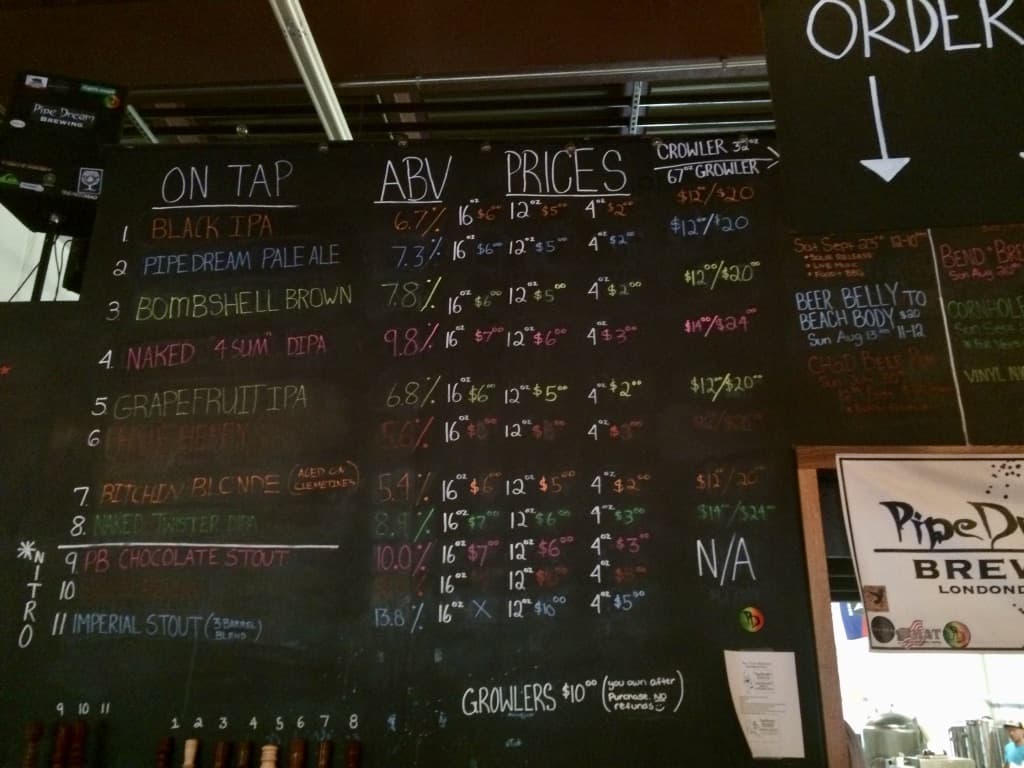 ORDER
Pipe Dream
BREWING
ON TAP ABV PRICES CROWLER 32oz
67oz GROWLER
1 BLACK IPA 6.7% 16oz $6 12oz $5 4oz $2 $12/$20
2 PIPE DREAM PALE ALE 7.3% 16oz $6 12oz $5 4oz $2 $12/$20
3 BOMBSHELL BROWN 7.8% 16oz $6 12oz $5 4oz $2 $12/$20
4. NAKED "4SUM" DIPA 9.8% 16oz $7 12oz $6 4oz $3 $14/$24
5. GRAPEFRUIT IPA 6.8% 16oz $6 12oz $5 4oz $2 $12/$20
6 16oz 12oz 4oz
7. BITCHIN BLONDE (AGED ON CLEMETINES) 5.4% 16oz $6 12oz $5 4oz $2 $12/20
8. NAKED TWISTER DIPA 16oz $7 12oz $6 4oz $3 $14/$24
*NITRO
9 PB CHOCOLATE STOUT 10.0% 16oz $7 12oz $6 4oz $3 N/A
10 16oz 12oz 4oz
11 IMPERIAL STOUT (3 BARREL BLEND) 13.8% 16oz X 12oz $10 4oz $5
GROWLERS $10.00 (you own after
Purchase. NO
refunds)
9 10 11
1 2 3 4 5 6 7 8
BEER BELLY TO
BEACH BODY $20
Sun Aug 13th 11-12
BEND
CORNHOLE
VINYL
Pipe
BREW
LONDOND